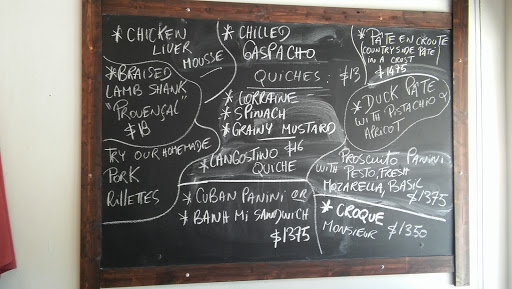 * CHICKEN
LIVER
MOUSSE
* BRAISED
LAMB SHANK
"PROVENÇAL"
$18
TRY OUR HOMEMADE
PORK
RILLETTES
* CHILLED
GASPACHO
QUICHES: $13
* LORRAINE
* SPINACH
* GRAINY MUSTARD
* LANGOSTINO $16
QUICHE
* CUBAN PANINI OR
* BANH MI SANDWICH
$1375
* PATE EN CROUTE
COUNTRY SIDE PATE
IN A CRUST
* $1475
* DUCK PATE
WITH PISTACHIO &
APRICOT
PROSCIUTO PANINI
WITH PESTO, FRESH
MOZARELLA, BASIL
$1375
* CROQUE
MONSIEUR $1350